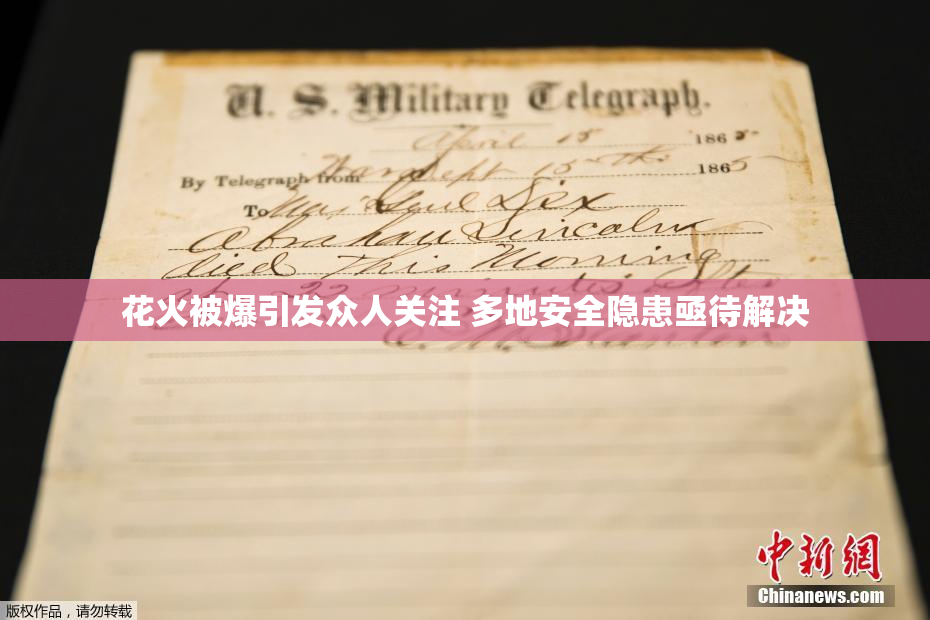 U. S. Military Telegraph.
April 15 1865
By Telegraph from War Dept 15th 1865
To Maj Genl Dix
Abraham Lincoln
died This Morning
at 22 minutes after
花火被爆引发众人关注 多地安全隐患亟待解决
E. M. Stanton
中新网
Chinanews.com
版权作品，请勿转载